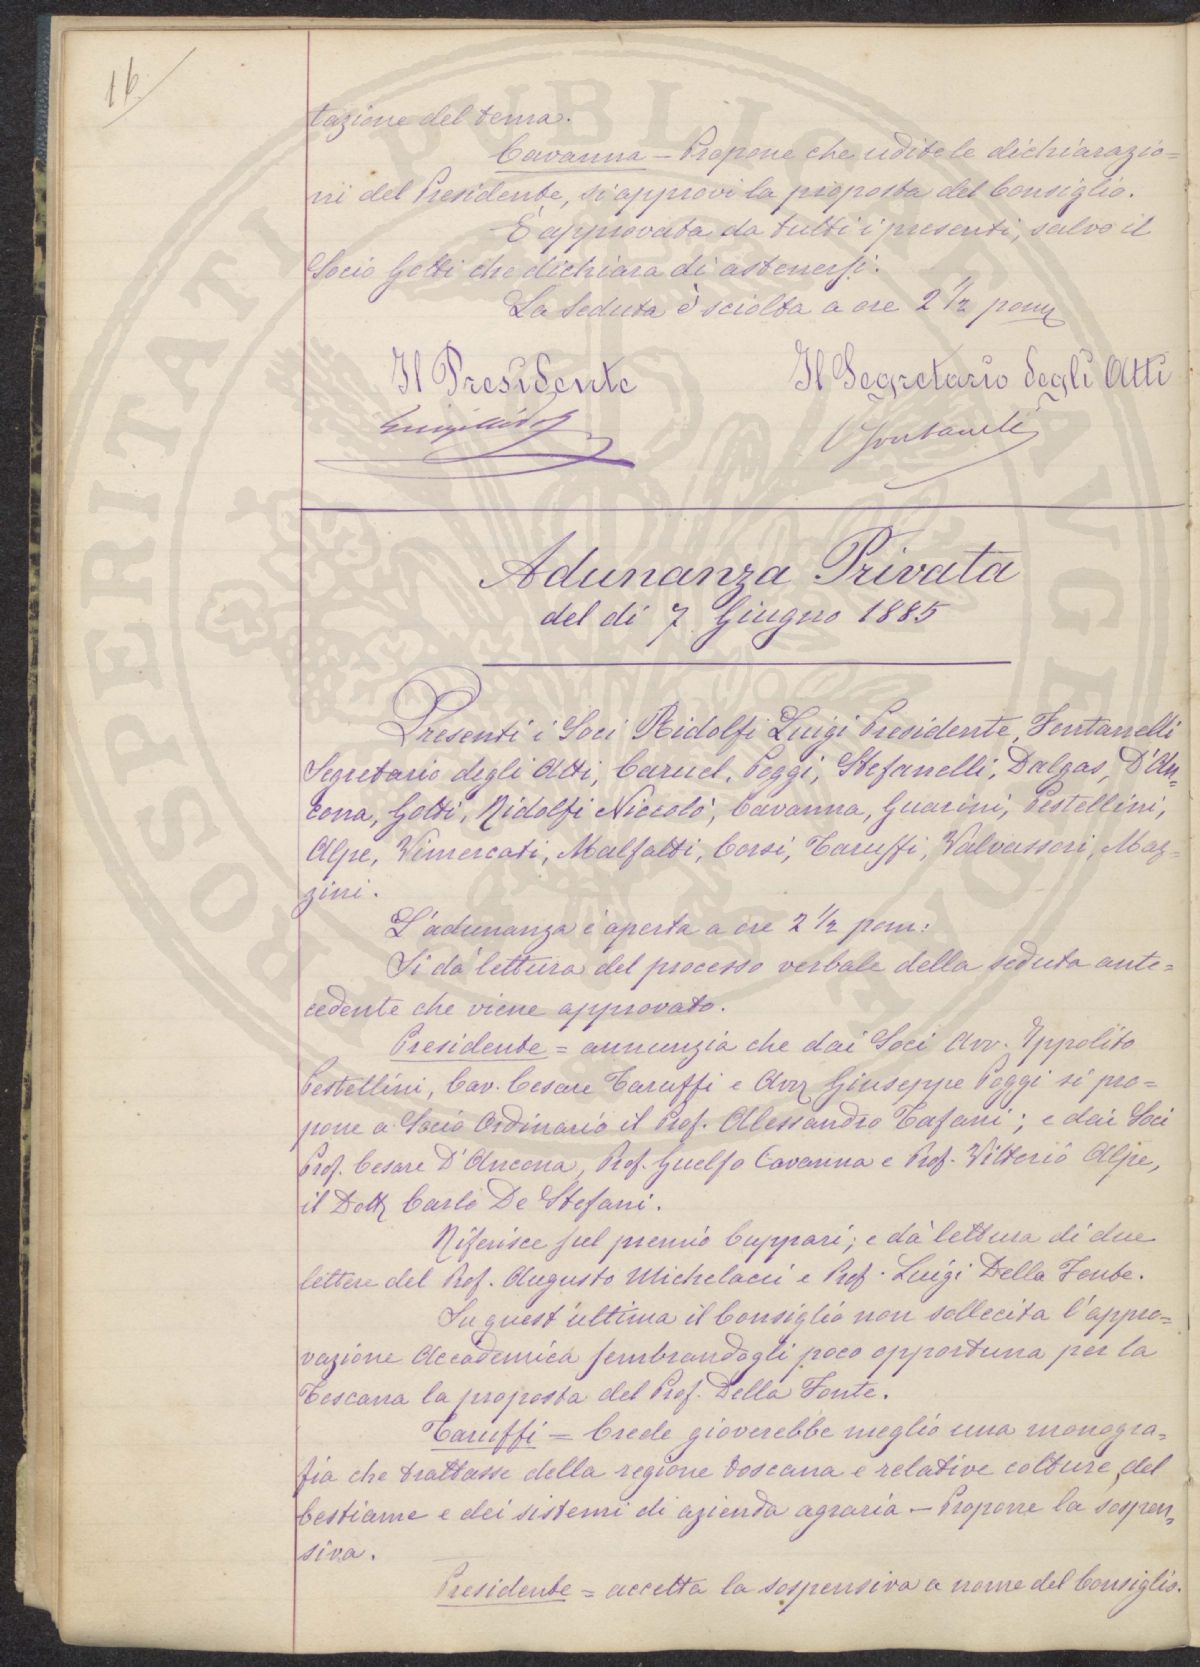 16
tazione del tema.
Cavanna — Propone che udite le dichiarazio=
ni del Presidente, si approvi la proposta del Consiglio.
È approvata da tutti i presenti, salvo il
Socio Gotti che dichiara di astenersi.
La Seduta è sciolta a ore 2 1/2 pom
Il Presidente
Il Segretario degli Atti
Luigi Ridolfi
Fontanelli
Adunanza Privata
del dì 7 Giugno 1885
Presenti i Soci Ridolfi Luigi Presidente, Fontanelli
Segretario degli Atti, Caruel, Poggi, Stefanelli, Dalgas, D'An=
cona, Gotti, Ridolfi Niccolò, Cavanna, Guarini, Pestellini,
Alpe, Vimercati, Malfatti, Corsi, Taruffi, Valvassori, Maz=
zini.
L'adunanza è aperta a ore 2 1/2 pom:
Si dà lettura del processo verbale della seduta ante=
cedente che viene approvato.
Presidente = annunzia che dai Soci Avv. Ippolito
Pestellini, Cav. Cesare Taruffi e Avv Giuseppe Poggi si pro=
pone a Socio Ordinario il Prof. Alessandro Tafani; e dai Soci
Prof. Cesare D'Ancona, Prof. Guelfo Cavanna e Prof. Vittorio Alpe,
il Dott Carlo De Stefani.
Riferisce sul premio Cuppari; e dà lettura di due
lettere del Prof. Augusto Michelacci e Prof. Luigi Della Fonte.
Su quest'ultima il Consiglio non sollecita l'appro=
vazione Accademica sembrandogli poco opportuna per la
Toscana la proposta del Prof. Della Fonte.
Taruffi = Crede gioverebbe meglio una monogra=
fia che trattasse della regione toscana e relative colture, del
bestiame e dei sistemi di azienda agraria — Propone la sospen=
siva.
Presidente = accetta la sospensiva a nome del Consiglio.
PROSPERITATI PUBLICAE AVGENDAE